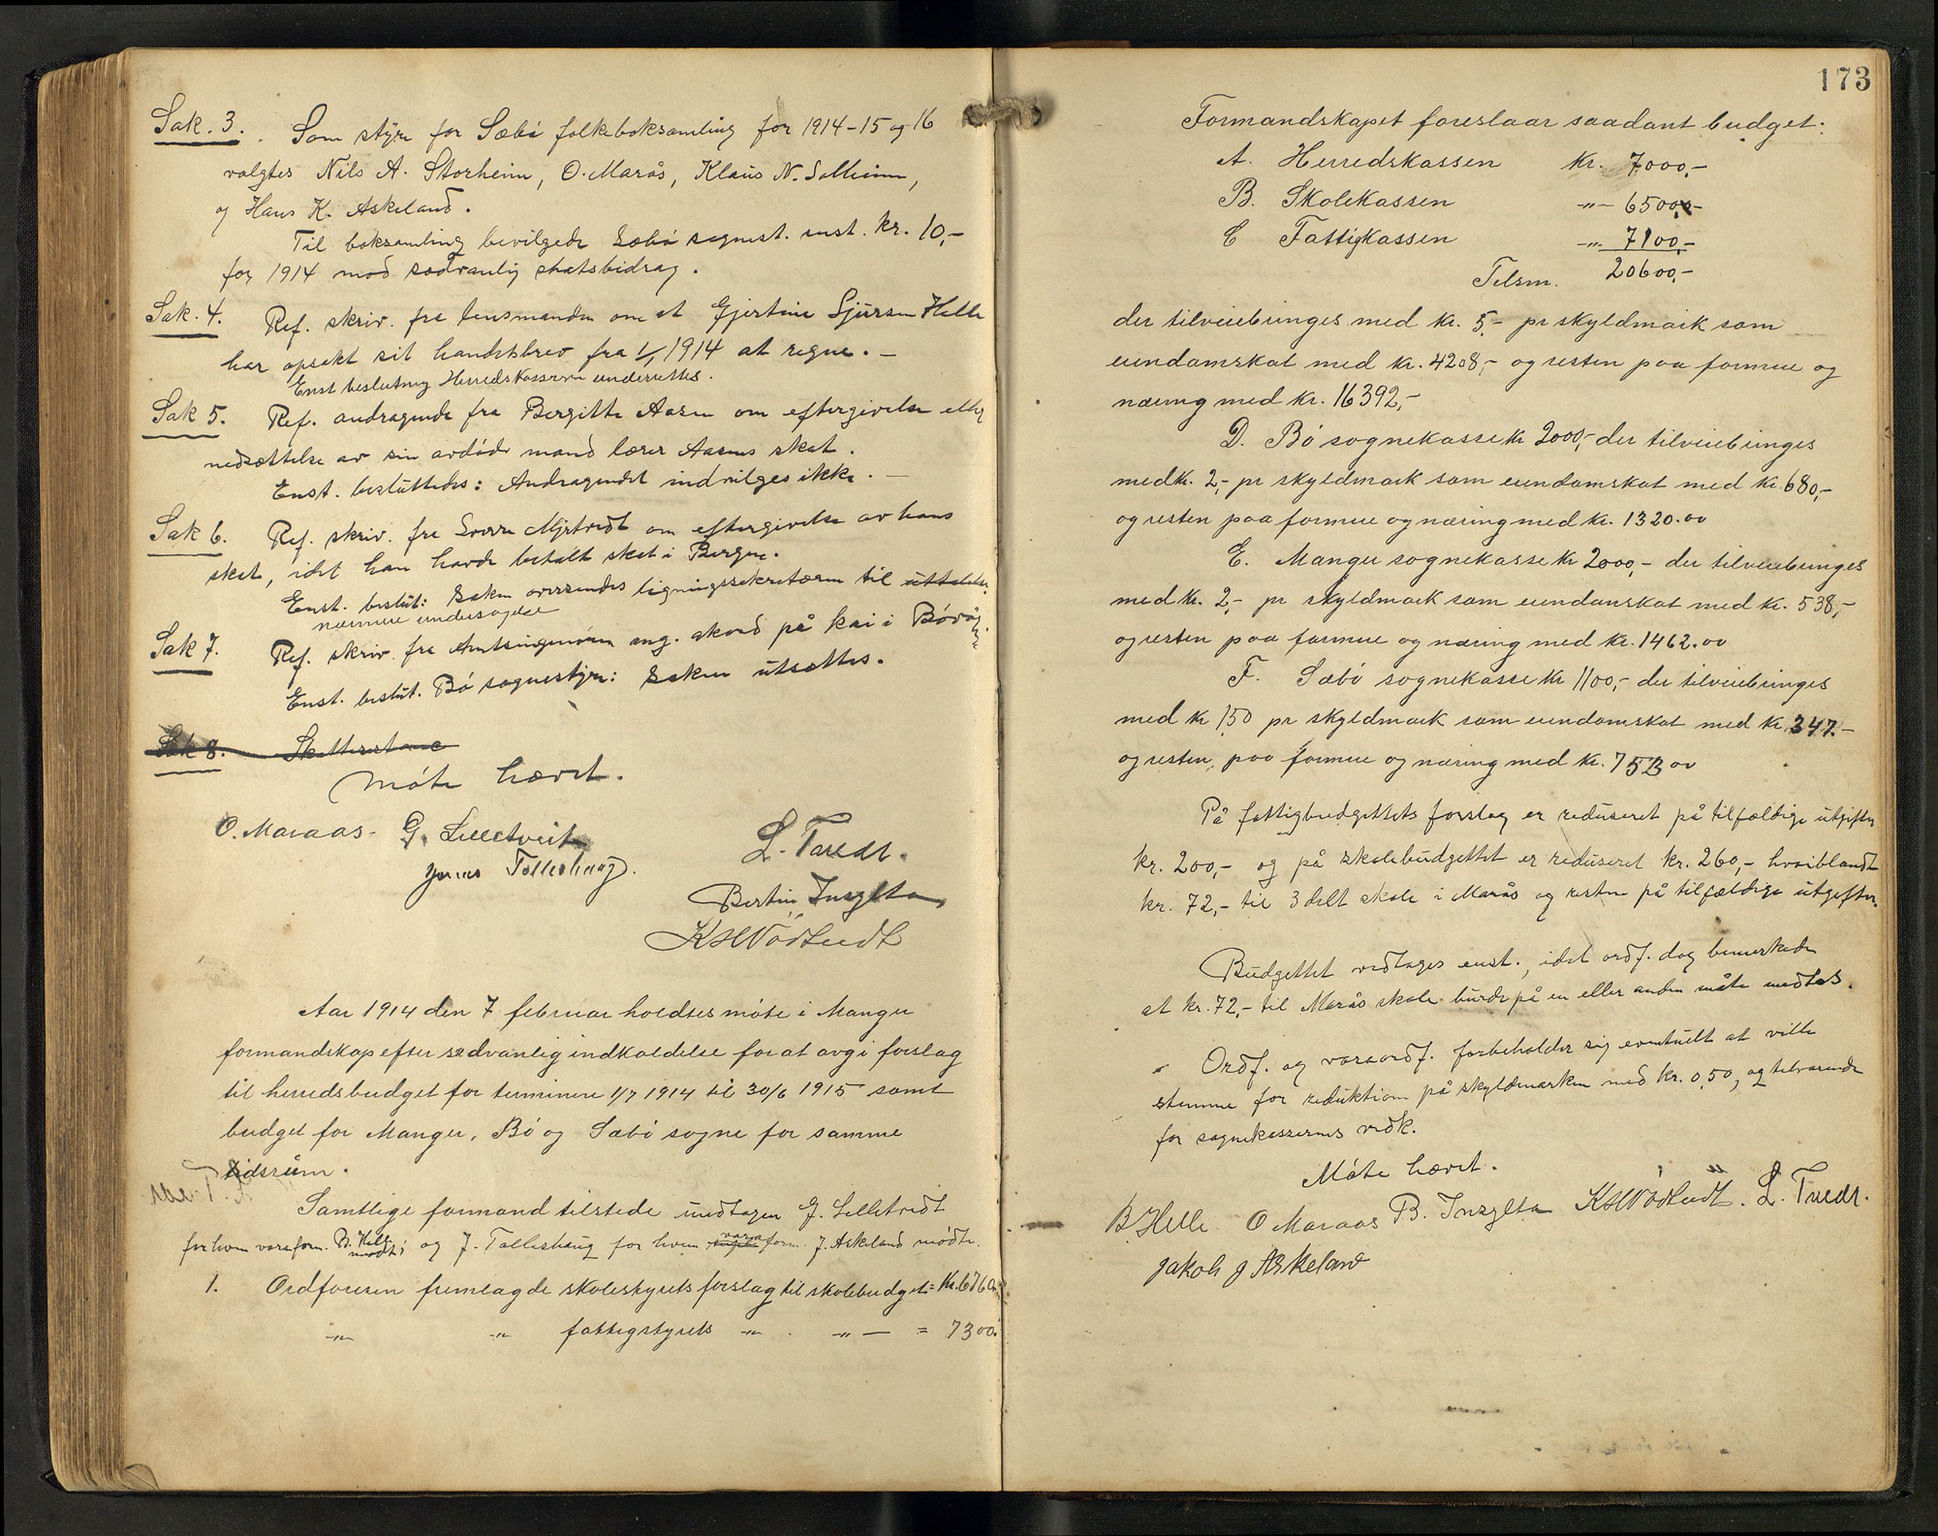 Sak. 3. Som styre for Sæbø folkeboksamling for 1914-15 og 16
valgtes Nils A. Storheim, O. Marås, Klaus N. Solheim,
og Hans K. Askeland.
Til boksamling bevilgede Sæbø sognest. enst. kr. 10,-
for 1914 mod sedvanlig statsbidrag.
Sak. 4. Ref. skriv. fra lensmanden om at Gjertine Sjursen Helle
har opsakt sit handelsbrev fra 1/1 1914 at regne. -
Enst beslutning Herredskasseren underrettes.
Sak 5. Ref. andragende fra Bergitte Aasen om eftergivelse eller
nedsættelse av sin avdøde mand lærer Aasens skat.
Enst. besluttedes: Andragendet indvilges ikke. -
Sak 6. Ref. skriv. fra Sverre Mjeltvedt om eftergivelse av hans
skat, idet han havde betalt skat i Bergen.
Enst. beslut: Saken oversendes ligningssekretæren til uttalelse.
nærmere undersøgelse
Sak 7. Ref. skriv. fra Amtsingeniøren ang. akord på kai i Bøvåg.
Enst. beslut. Bø sognestyre: Saken utsættes.
Sak 8.
Møte hævet.
O. Maraas. G. Lilletveit L. Tvedt.
Jonas Tolleshaug.
Bertin Inzylta
K H Nødtvedt
Aar 1914 den 7 februar holdtes møte i Manger
formandskap efter sedvanlig indkaldelse for at avgi forslag
til herredsbudget for terminen 1/7 1914 til 30/6 1915 samt
budget for Manger, Bø og Sæbø sogne for samme
tidsrum.
Samtlige formænd tilstede undtagen G. Lilletvedt
for hvem varaform. B. Helle møtte og J. Tolleshaug for hvem varaform. J. Askeland mødte.
1. Ordføreren fremlagde skolestyrets forslag til skolebudget = Kr. 6760,-
-"- -"- fattigstyrets -"- -"- = 7300.
173
Formandskapet foreslaar saadant budget:
A. Herredskassen Kr. 7000,-
B. Skolekassen -"- 6500,-
C Fattigkassen -"- 7100,-
Tilsm. 20600,-
der tilveiebringes med kr. 5,- pr skyldmark som
eiendomskat med kr. 4208,- og resten paa formue og
næring med kr. 16392,-
D. Bø sognekasse kr 2000,- der tilveiebringes
med kr. 2,- pr skyldmark som eiendomskat med kr. 680,-
og resten paa formue og næring med kr. 1320.00
E. Manger sognekasse kr 2000,- der tilveiebringes
med kr. 2,- pr skyldmark som eiendomskat med kr. 538,-
og resten paa formue og næring med kr. 1462.00
F. Sæbø sognekasse kr 1100,- der tilveiebringes
med kr 1,50 pr skyldmark som eiendomskat med kr 347.-
og resten paa formue og næring med kr. 753 00
På fattigbudgettets forslag er reduseret på tilfældige utgifter
kr. 200,- og på skolebudgettet er reduseret kr. 260,- hvoriblandt
kr. 72,- til 3delt skole i Marås og resten på tilfældige utgifter.
Budgettet vedtages enst., idet ordf. dog bemerkede
at kr. 72,- til Marås skole burde på en eller anden måte medtas.
Ordf. og varaordf. forbeholder sig eventuelt at ville
stemme for reduktion på skyldmarken med kr. 0,50, og tilsvarende
for sognekassernes vedk.
Møte hævet.
B. Helle O Maraas B. Inzylta K H Nødtvedt. L. Tvedt.
Jakob J Askeland